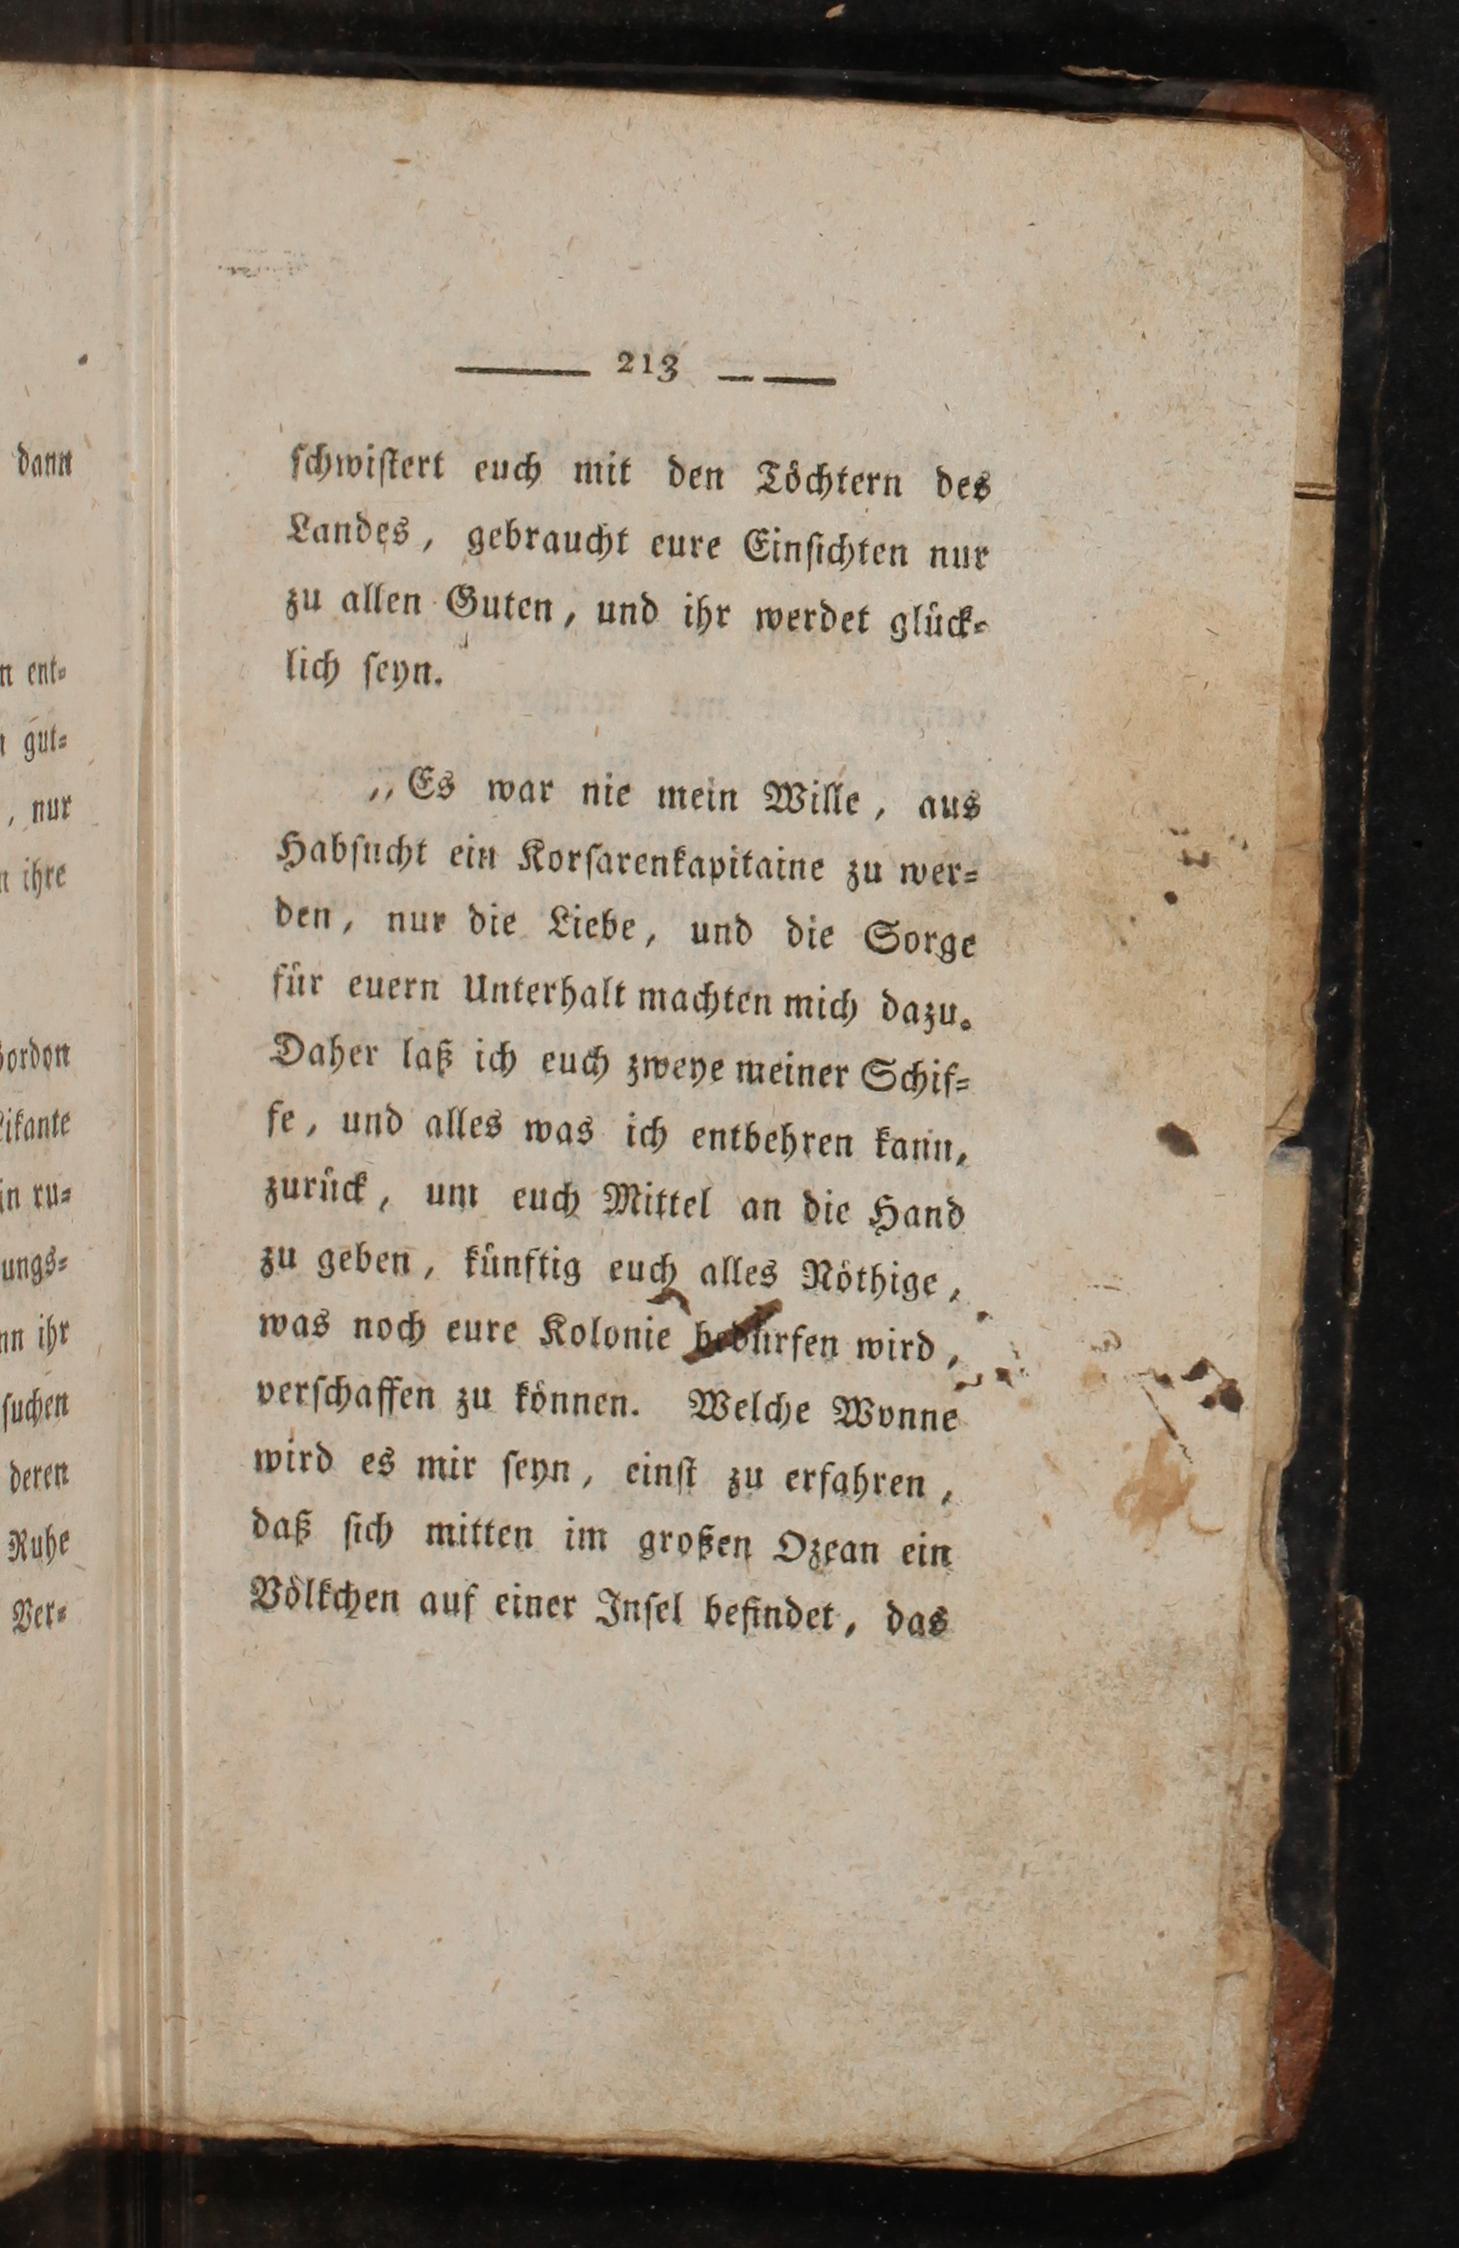 dann
n ent=
gut=
, nur
n ihre
ordon
likante
in ru=
ungs=
nn ihr
suchen
deren
Ruhe
Ver=
213
schwistert euch mit den Töchtern des
Landes, gebraucht eure Einsichten nur
zu allen Guten, und ihr werdet glück=
lich seyn.
„Es war nie mein Wille, aus
Habsucht ein Korsarenkapitaine zu wer=
den, nur die Liebe, und die Sorge
für euern Unterhalt machten mich dazu.
Daher laß ich euch zweye meiner Schif=
fe, und alles was ich entbehren kann,
zurück, um euch Mittel an die Hand
zu geben, künftig euch alles Nöthige,
was noch eure Kolonie bedürfen wird,
verschaffen zu können. Welche Wonne
wird es mir seyn, einst zu erfahren,
daß sich mitten im großen Ozean ein
Völkchen auf einer Insel befindet, das